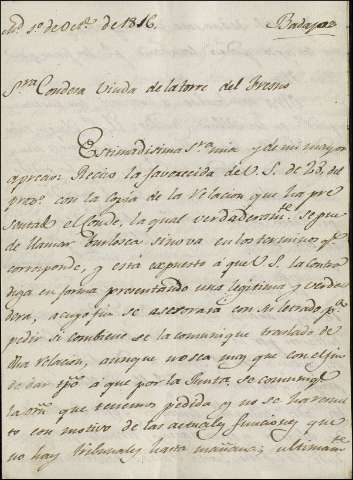 Md. 1º de Octe. de 1816. Badajoz
Sra. Condesa Viuda de la torre del Fresno
Estimadisima Sra. mia y de mi mayor
aprecio: Recivo la favorecida de V. S. de 28, del
proxo. con la Copia de la Relacion que ha pre
sentado el Conde, la qual verdaderamte. se pue
de llamar burlesca sino va en los terminos qe.
corresponde, y está expuesto á que V. S. la contra
diga en forma presentando una legitima y verda
dera, a cuyo fin se asesorará con su letrado pa.
pedir si combiene se la comunique traslado de
dha relacion, aunque no sea mas que con el fin
de dar tpo. á que por la Junta, se comunique
la orn. que tenemos pedida y no se ha remi
to con motivo de las actuales funciones que
no hay tribunales hasta mañana; ultimamte.